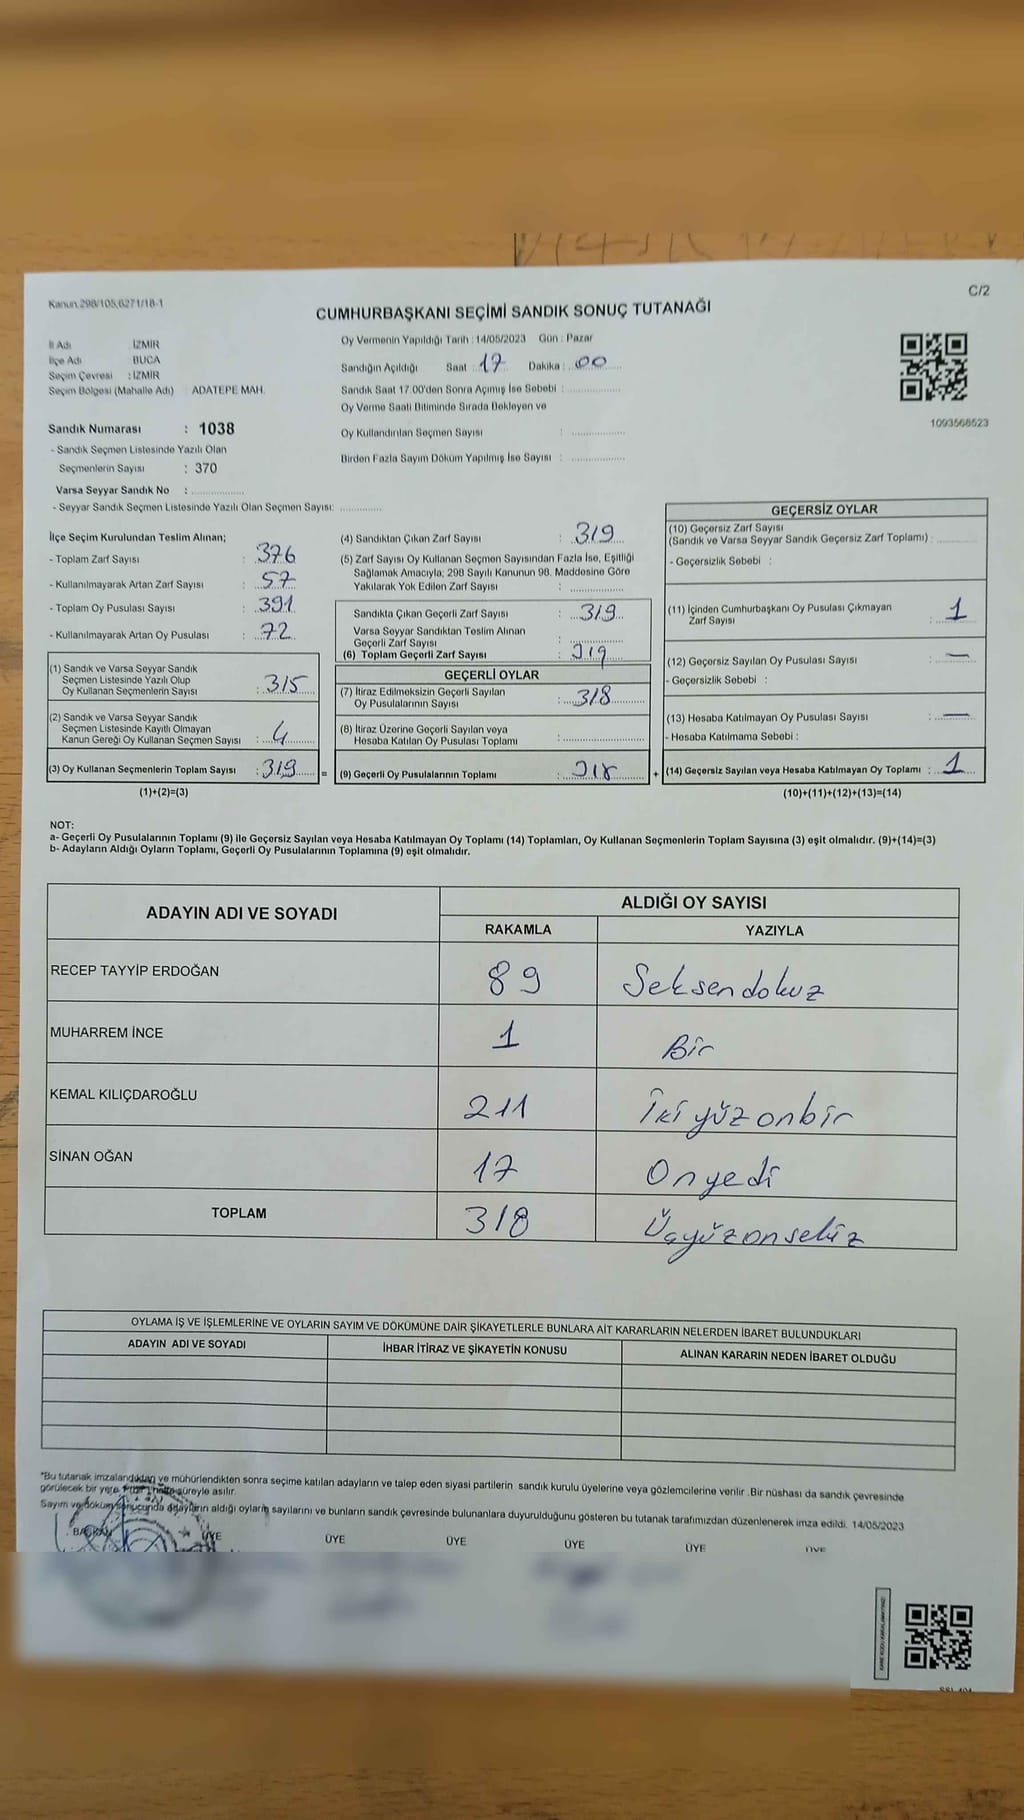 Kanun.298/105,6271/18-1
C/2
CUMHURBAŞKANI SEÇİMİ SANDIK SONUÇ TUTANAĞI
İl Adı İZMİR
İlçe Adı BUCA
Seçim Çevresi : İZMİR
Seçim Bölgesi (Mahalle Adı) ADATEPE MAH.
Sandık Numarası : 1038
- Sandık Seçmen Listesinde Yazılı Olan
Seçmenlerin Sayısı : 370
Varsa Seyyar Sandık No :
- Seyyar Sandık Seçmen Listesinde Yazılı Olan Seçmen Sayısı:
Oy Vermenin Yapıldığı Tarih : 14/05/2023 Gün : Pazar
Sandığın Açıldığı Saat 17 Dakika : 00
Sandık Saat 17.00'den Sonra Açımış İse Sebebi :
Oy Verme Saati Bitiminde Sırada Bekleyen ve
Oy Kullandırılan Seçmen Sayısı :
Birden Fazla Sayım Döküm Yapılmış İse Sayısı :
1093568523
İlçe Seçim Kurulundan Teslim Alınan;
- Toplam Zarf Sayısı : 376
- Kullanılmayarak Artan Zarf Sayısı : 57
- Toplam Oy Pusulası Sayısı : 391
- Kullanılmayarak Artan Oy Pusulası : 72
(1) Sandık ve Varsa Seyyar Sandık
Seçmen Listesinde Yazılı Olup
Oy Kullanan Seçmenlerin Sayısı : 315
(2) Sandık ve Varsa Seyyar Sandık
Seçmen Listesinde Kayıtlı Olmayan
Kanun Gereği Oy Kullanan Seçmen Sayısı : 4
(3) Oy Kullanan Seçmenlerin Toplam Sayısı : 319 =
(1)+(2)=(3)
(4) Sandıktan Çıkan Zarf Sayısı : 319
(5) Zarf Sayısı Oy Kullanan Seçmen Sayısından Fazla İse, Eşitliği
Sağlamak Amacıyla; 298 Sayılı Kanunun 98. Maddesine Göre
Yakılarak Yok Edilen Zarf Sayısı :
Sandıkta Çıkan Geçerli Zarf Sayısı : 319
Varsa Seyyar Sandıktan Teslim Alınan
Geçerli Zarf Sayısı :
(6) Toplam Geçerli Zarf Sayısı : 319
GEÇERLİ OYLAR
(7) İtiraz Edilmeksizin Geçerli Sayılan
Oy Pusulalarının Sayısı : 318
(8) İtiraz Üzerine Geçerli Sayılan veya
Hesaba Katılan Oy Pusulası Toplamı :
(9) Geçerli Oy Pusulalarının Toplamı : 318 +
GEÇERSİZ OYLAR
(10) Geçersiz Zarf Sayısı
(Sandık ve Varsa Seyyar Sandık Geçersiz Zarf Toplamı) :
- Geçersizlik Sebebi :
(11) İçinden Cumhurbaşkanı Oy Pusulası Çıkmayan
Zarf Sayısı : 1
(12) Geçersiz Sayılan Oy Pusulası Sayısı : —
- Geçersizlik Sebebi :
(13) Hesaba Katılmayan Oy Pusulası Sayısı : —
- Hesaba Katılmama Sebebi :
(14) Geçersiz Sayılan veya Hesaba Katılmayan Oy Toplamı : 1
(10)+(11)+(12)+(13)=(14)
NOT:
a- Geçerli Oy Pusulalarının Toplamı (9) ile Geçersiz Sayılan veya Hesaba Katılmayan Oy Toplamı (14) Toplamları, Oy Kullanan Seçmenlerin Toplam Sayısına (3) eşit olmalıdır. (9)+(14)=(3)
b- Adayların Aldığı Oyların Toplamı, Geçerli Oy Pusulalarının Toplamına (9) eşit olmalıdır.
ADAYIN ADI VE SOYADI ALDIĞI OY SAYISI
RAKAMLA YAZIYLA
RECEP TAYYİP ERDOĞAN 89 Seksendokuz
MUHARREM İNCE 1 Bir
KEMAL KILIÇDAROĞLU 211 İkiyüzonbir
SİNAN OĞAN 17 Onyedi
TOPLAM 318 Üçyüzonsekiz
OYLAMA İŞ VE İŞLEMLERİNE VE OYLARIN SAYIM VE DÖKÜMÜNE DAİR ŞİKAYETLERLE BUNLARA AİT KARARLARIN NELERDEN İBARET BULUNDUKLARI
ADAYIN ADI VE SOYADI İHBAR İTİRAZ VE ŞİKAYETİN KONUSU ALINAN KARARIN NEDEN İBARET OLDUĞU
"Bu tutanak imzalandıktan ve mühürlendikten sonra seçime katılan adayların ve talep eden siyasi partilerin sandık kurulu üyelerine veya gözlemcilerine verilir .Bir nüshası da sandık çevresinde
görülecek bir yere süreyle asılır.
Sayım ve döküm sonucunda adayların aldığı oyların sayılarını ve bunların sandık çevresinde bulunanlara duyurulduğunu gösteren bu tutanak tarafımızdan düzenlenerek imza edildi. 14/05/2023
BAŞKAN ÜYE ÜYE ÜYE ÜYE ÜYE ÜYE